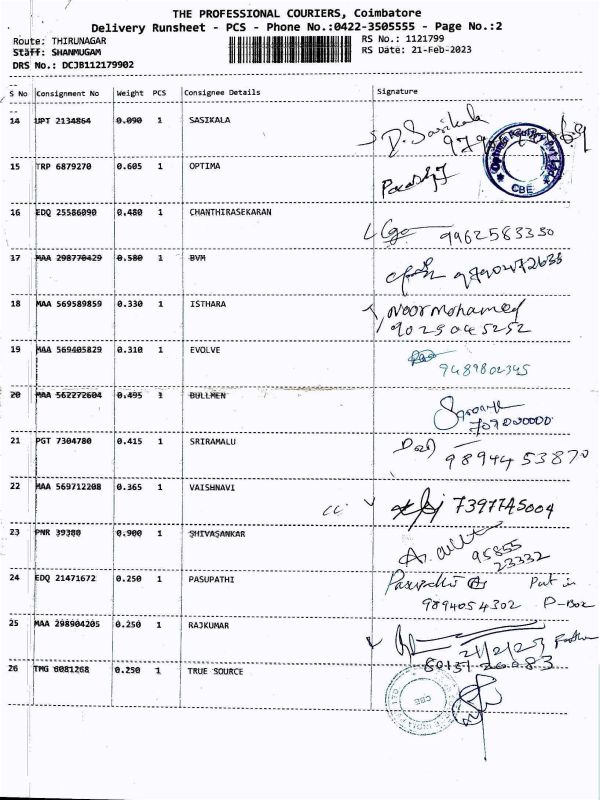 THE PROFESSIONAL COURIERS, Coimbatore
Delivery Runsheet - PCS - Phone No.:0422-3505555 - Page No.:2
Route: THIRUNAGAR RS No.: 1121799
Staff: SHANMUGAM RS Date: 21-Feb-2023
DRS No.: DCJB112179902
S No Consignment No Weight PCS Consignee Details Signature
14 UPT 2134864 0.090 1 SASIKALA
D. Sasikala
15 TRP 6879270 0.605 1 OPTIMA
CBE
16 EDQ 25586090 0.480 1 CHANTHIRASEKARAN
9962583330
17 MAA 298770429 0.580 1 BVM
18 MAA 569589859 0.330 1 ISTHARA
Noor Mohamed
9025045252
19 MAA 569405829 0.310 1 EVOLVE
9489802345
20 MAA 562272604 0.495 1 BULLMEN
21 PGT 7304780 0.415 1 SRIRAMALU
9894453870
22 MAA 569712208 0.365 1 VAISHNAVI
7397745004
23 PNR 39380 0.900 1 SHIVASANKAR
95855
23332
24 EDQ 21471672 0.250 1 PASUPATHI
Pasupathi Put in
9894054302 P-Box
25 MAA 298904205 0.250 1 RAJKUMAR
21/2/23 Father
26 TMG 6081268 0.250 1 TRUE SOURCE
CBE